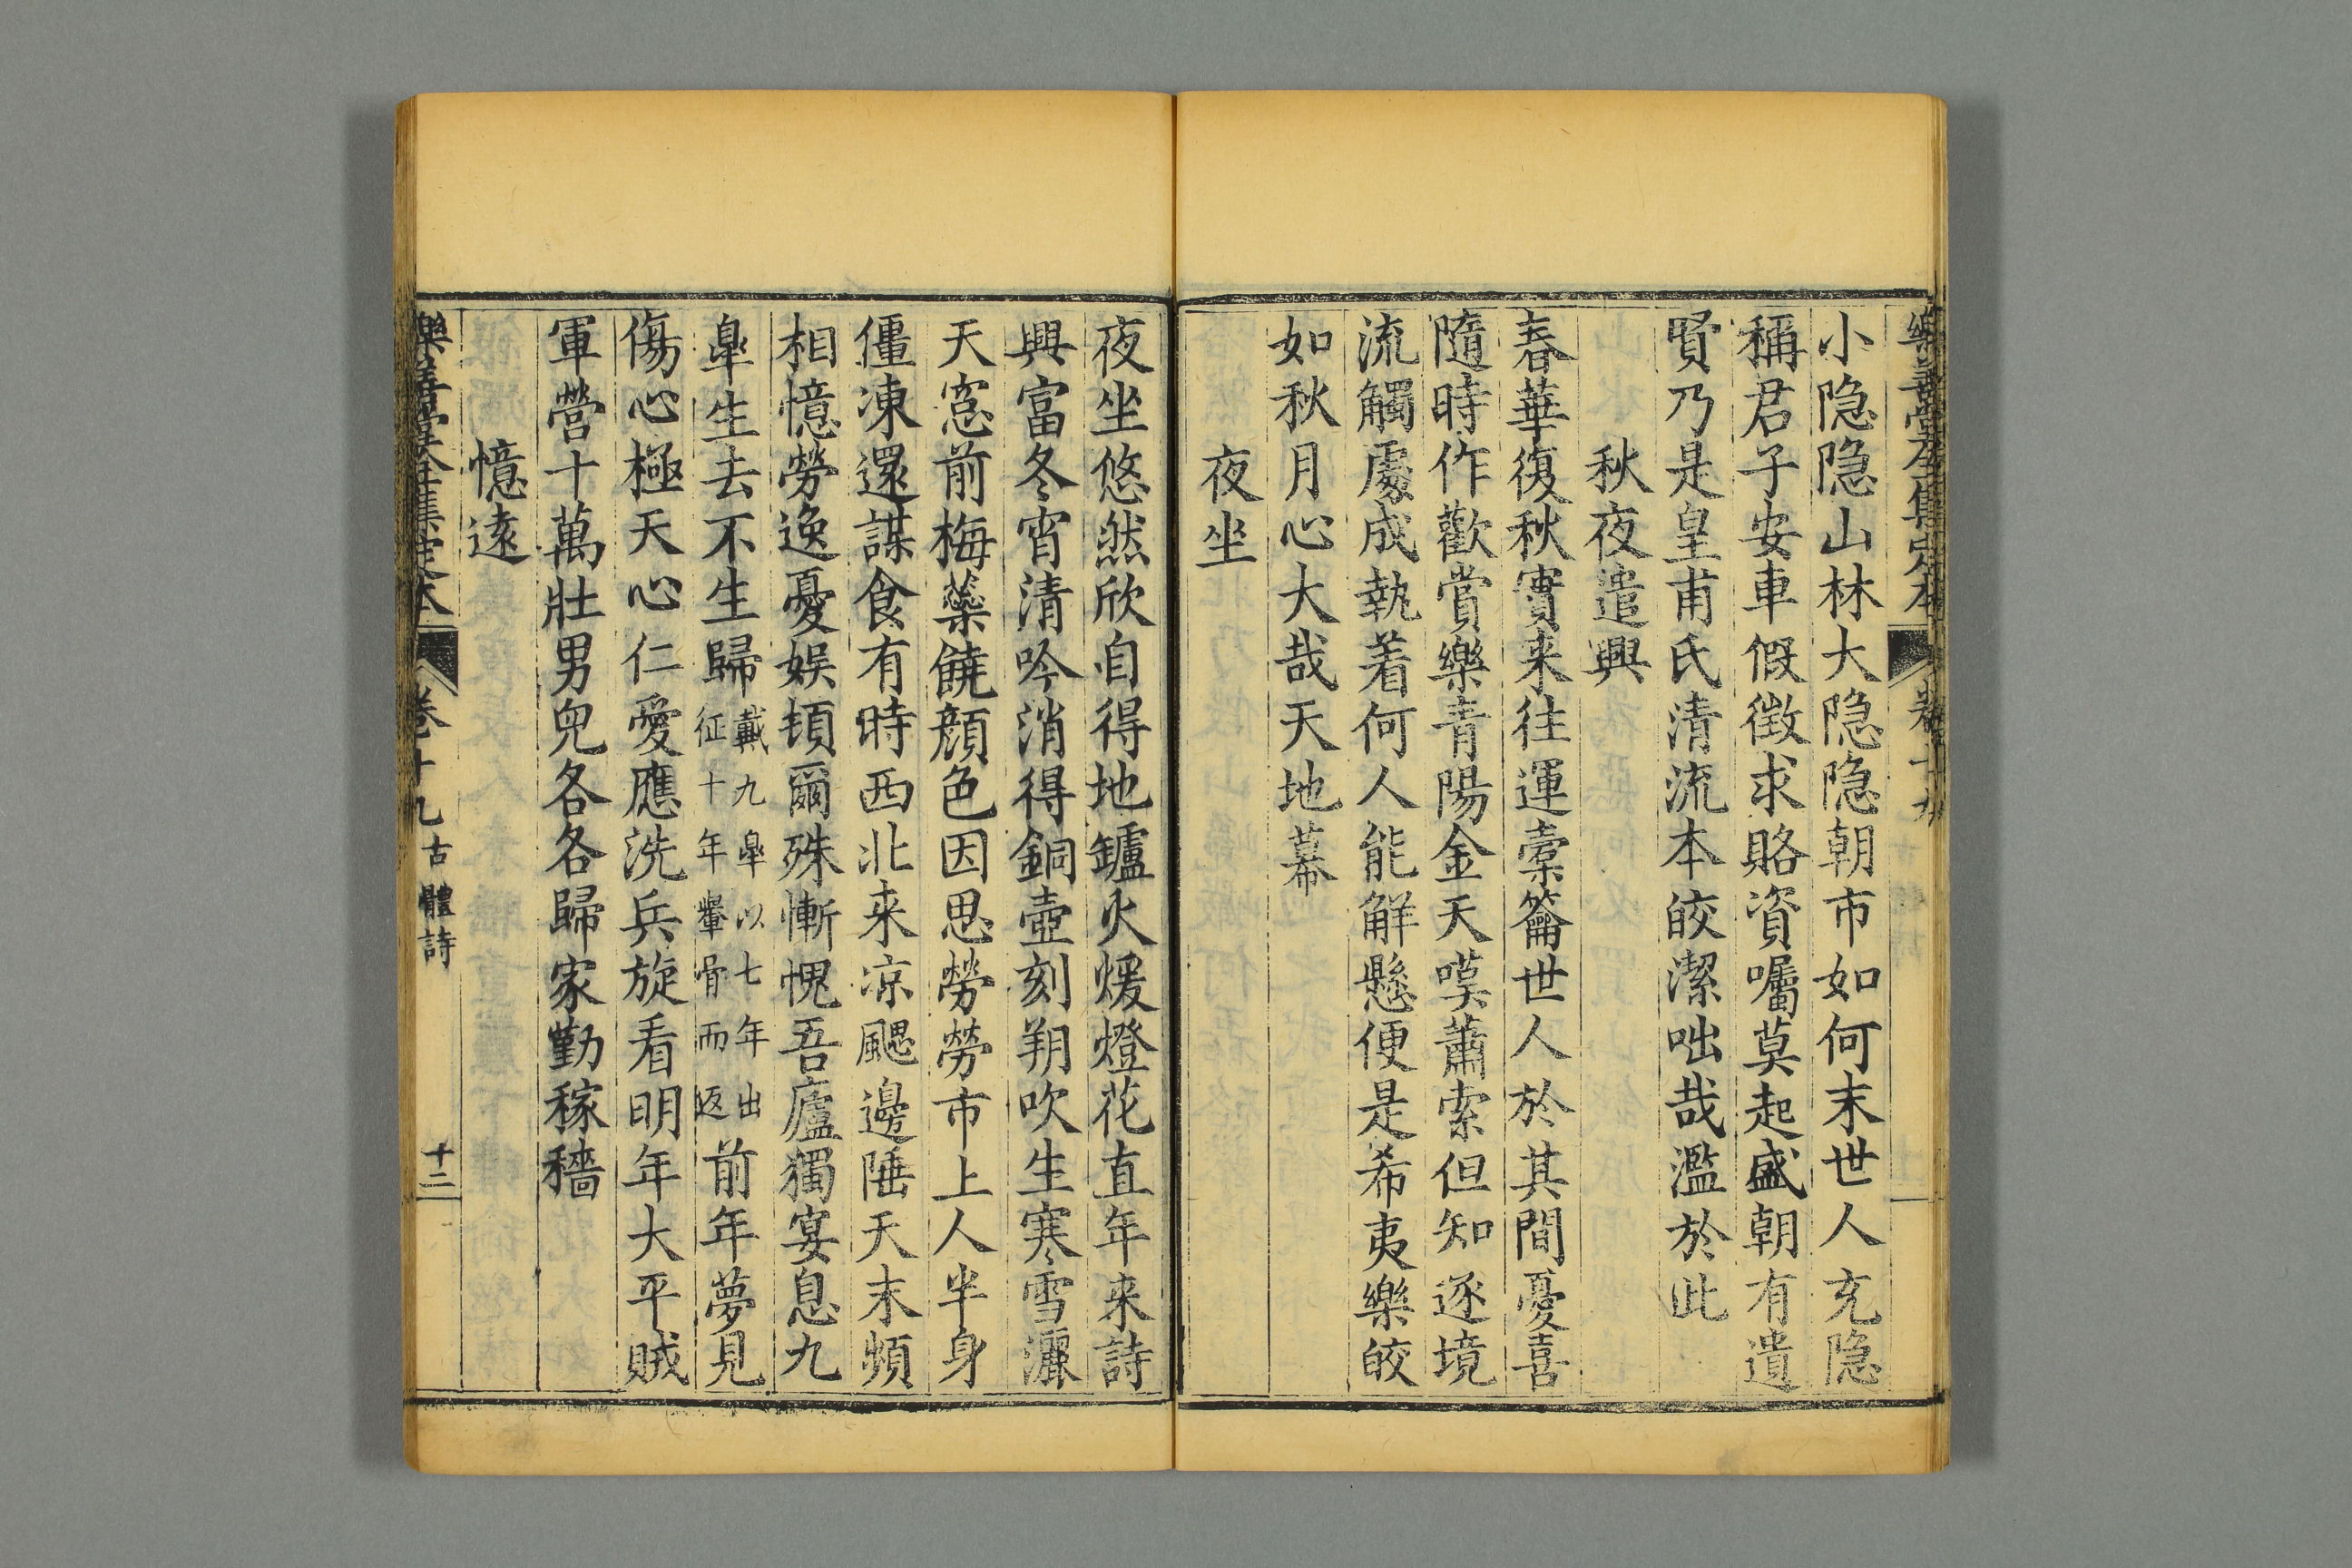 樂善堂全集定本 卷十九
小隐隐山林大隐隐朝市如何末世人充隐
稱君子安車假徵求賂資囑莫起盛朝有遺
賢乃是皇甫氏清流本皎潔咄哉濫於此
秋夜遣興
春華復秋實来往運槖籥世人於其間憂喜
隨時作歡賞樂青陽金天嘆蕭索但知逐境
流觸處成執着何人能解懸便是希夷樂皎
如秋月心大哉天地幕
夜坐
夜坐悠然欣自得地鑪火煖燈花直年来詩
興富冬宵清吟消得銅壺刻朔吹生寒雪灑
天窓前梅蘂饒顔色因思勞勞市上人半身
僵凍還謀食有時西北来凉颸邊陲天末頻
相憶勞逸憂娱頓爾殊慚愧吾廬獨宴息九
臯生去不生歸戴九臯以七年出征十年轝骨而返前年夢見
傷心極天心仁愛應洗兵旋看明年大平賊
軍營十萬壯男兒各各歸家勤稼穡
憶遠
樂善堂全集定本 卷十九 古體詩 十二